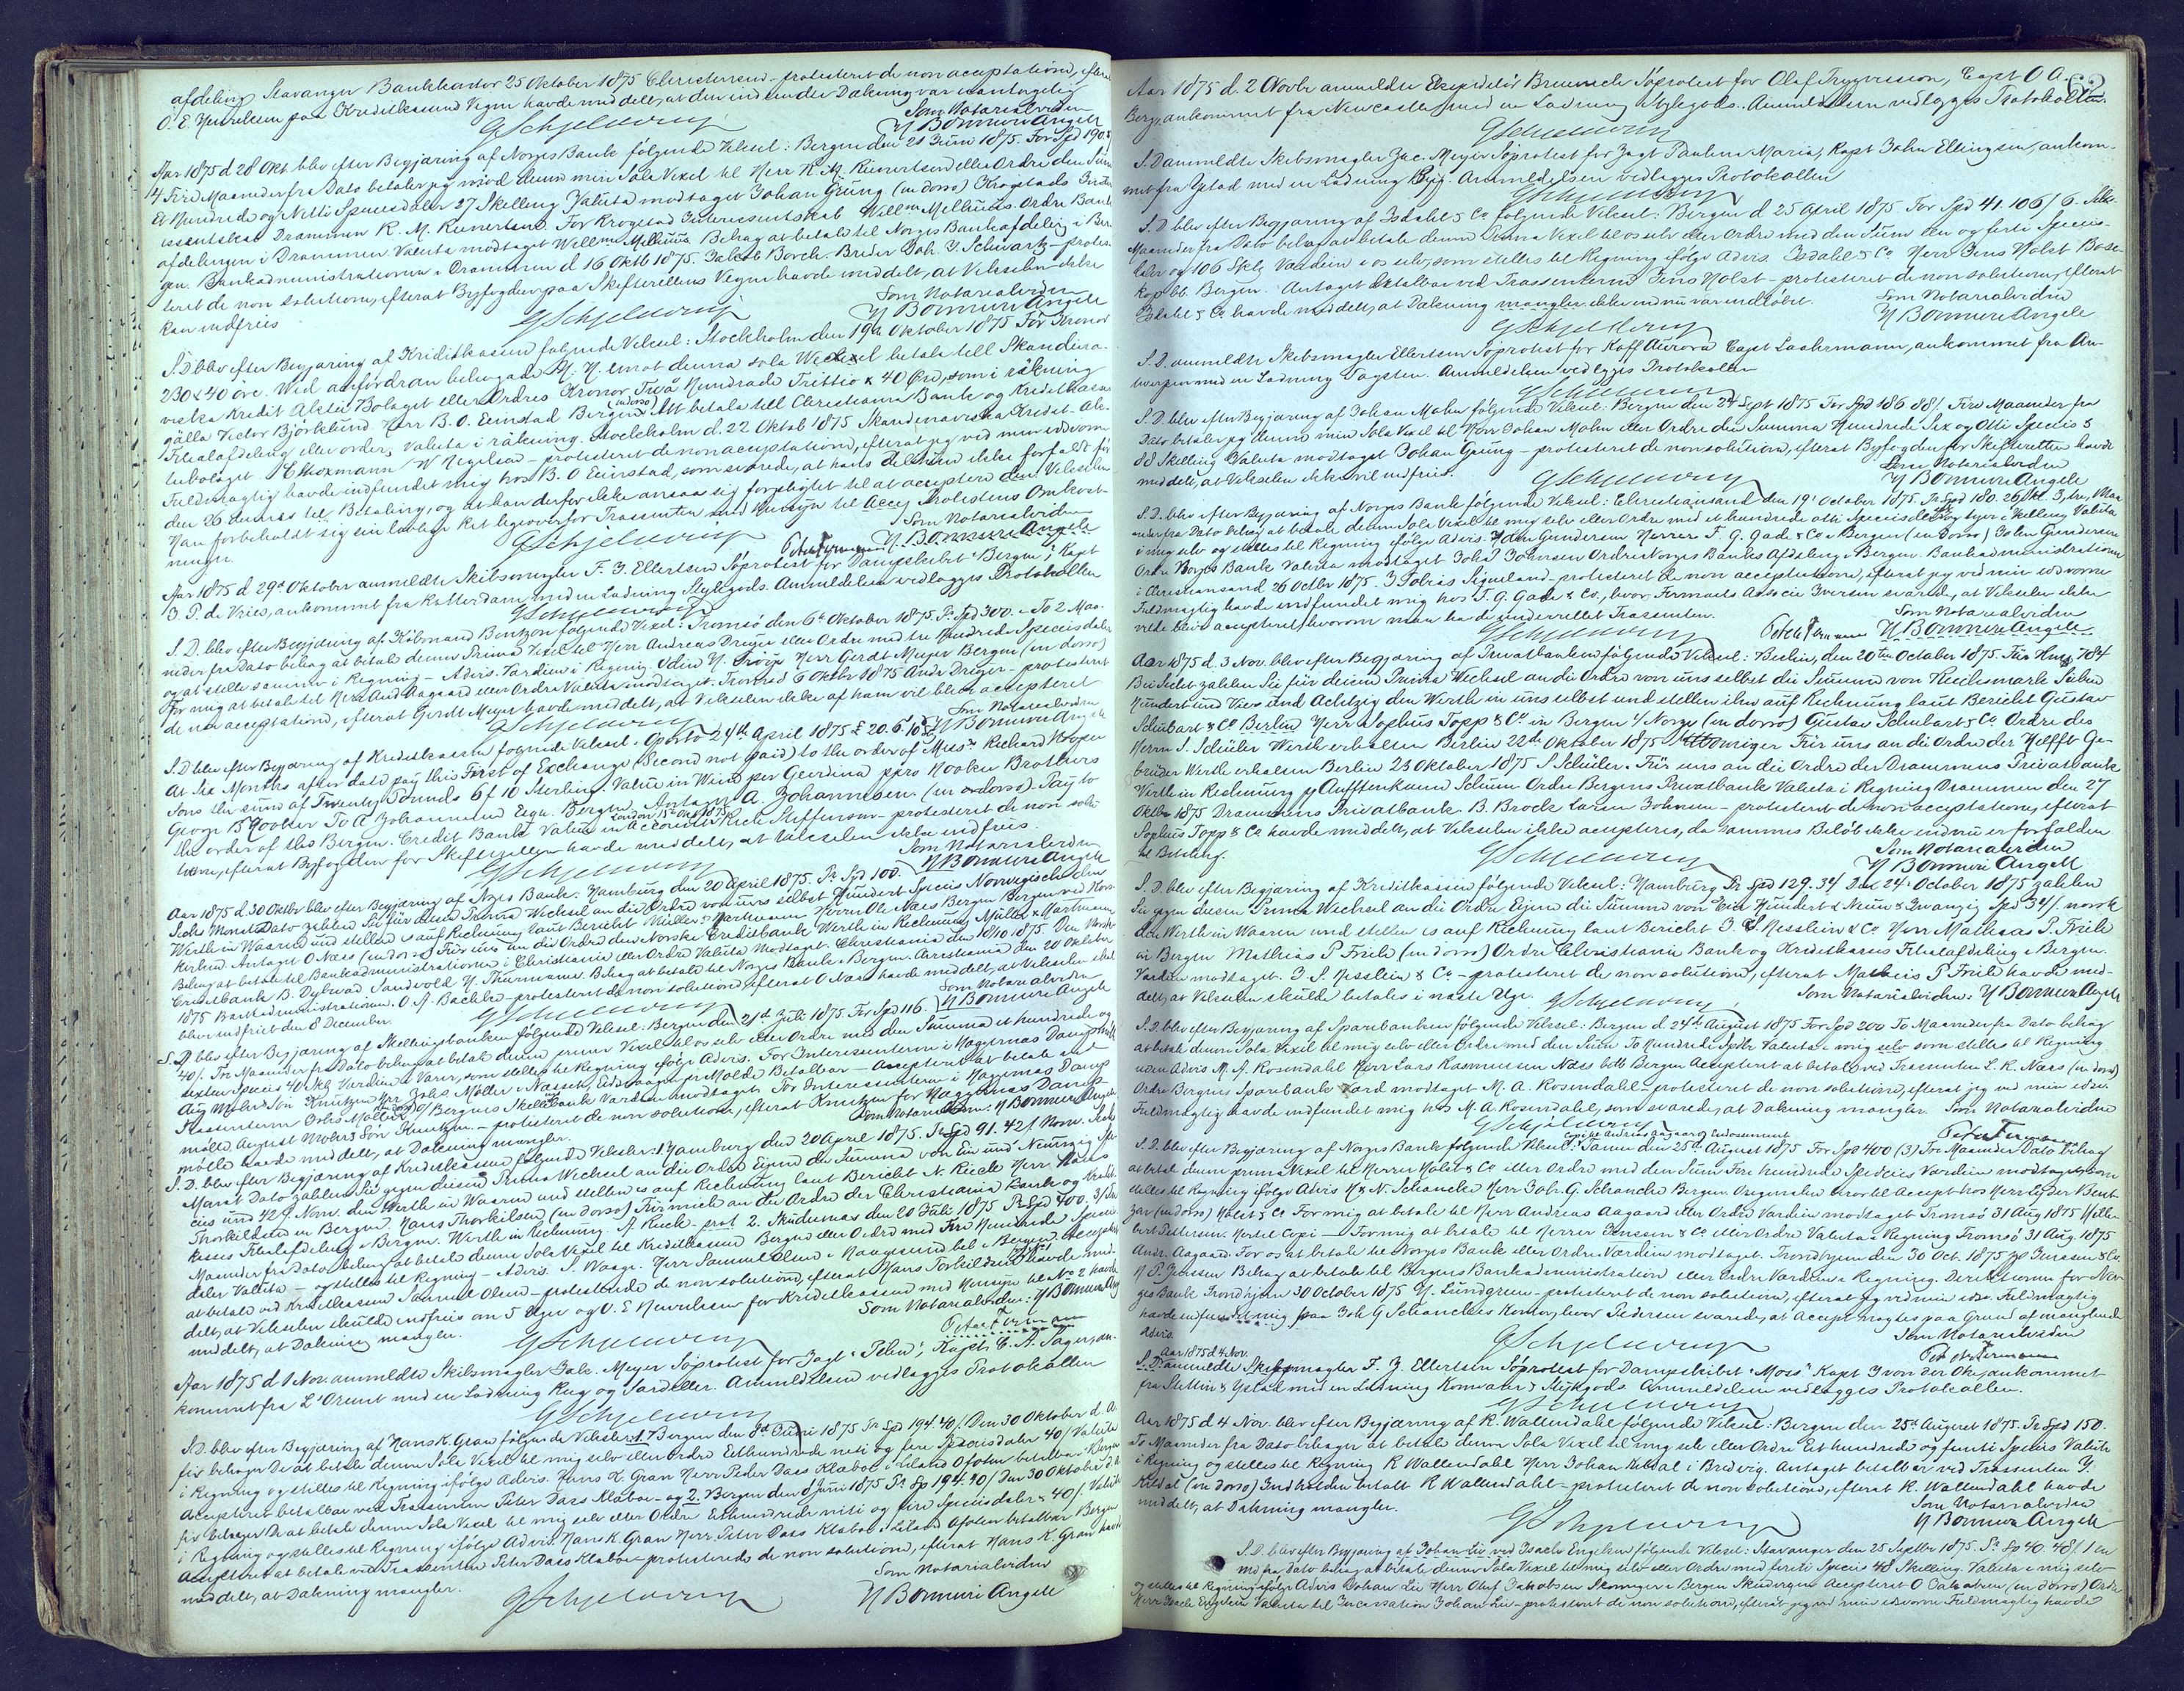 afdeling Stavanger Bankkontor 25 Oktober 1875 Christensen - protesteret de non acceptatione, efterat
O. E. paa Kreditkassens Vegne havde meddelt, at den indsendte Dækning var uantagelig
Som Notarialvidne
GSchjelderup N Bonnevie Angell
Aar 1875 d 28 Okt. blev efter Begjæring af Norges Bank følgende Veksel: Bergen den 21 Juni 1875. For Spd 190.
Fire Maaneder fra Dato betaler jeg mod denne min Sola Vexel til Herr R. M. Reinertsen eller Ordre den Sum
Et Hundrede og Nitti Speciesdaler 27 Skilling Valuta modtaget Johan Grung (in dorso) Krogstads
Drammen R. M. Reinertsen. For Krogstad Interessentskab Willm Melhuus. Ordre Bank
afdelingen i Drammen Valuta modtaget Willm Melhuus. Behag at betale til Norges Banks afdeling i Ber
gen. Bankadministrationen i Drammen d 16 Oktb 1875. Jakob Borch. Breder Joh. J. Schwartz - protes
teret de non solutione, efterat Byfogden paa Skifterettens Vegne havde meddelt, at Vekselen ikke
kan indfries
Som Notarialvidne
GSchjelderup N Bonnevie Angell
S. D blev efter Begjæring af Kreditkassen følgende Veksel: Stockholm den 19de Oktober 1875 För Kronor
230 & 40 öre. Wid anfordran behagade H. H. emot denna sola Wexel betala till Skandina-
viska Kredit Aktie Bolaget eller Ordres Kronor Twå Hundrade Trettio & 40 Öre, som i räkning
gälla Victor Björklund Herr B. O. Einstad Bergen (in dorso) Att betala till Christiania Bank og Kreditkasse
Filialafdeling eller order, Valuta i räkning. Stockholm d. 22 Oktob 1875 Skandinaviska Kredit-Ak-
tiebolaget - protesteret de non acceptatione, efterat jeg ved min edsvorne
Fuldmægtig havde indfundet mig hos B. O Einstad, som svarede, at hans Gjeld ikke forfaldt før
den 26 dennes til Betaling, og at han derfor ikke ansaa sig forpligtet til at acceptere den Vekselen
Han forbeholdt sig sin lovlige Ret ligeoverfor Trassenten med Hensyn til Accept Protestens Omkost-
ninger.
Som Notarialvidne
GSchjelderup Peter Formann N Bonnevie Angell
Aar 1875 d 29de Oktober anmeldte Skibsmægler F. Z. Ellertsen Söprotest for Dampskibet "Bergen", Kapt
J. P. de Vries, ankommet fra Rotterdam med en Ladning Stykgods. Anmeldelsen vedlægges Protokollen
GSchjelderup
S. D. blev efter Begjæring af Kjöbmand Bentzon følgende Vexel: Tromsö den 6te Oktober 1875. Pr Spd 300. - To 2 Maa-
neder fra Dato behag at betale denne Prima Vexel til Herr Andreas Dreyer eller Ordre med tre Hundrede Speciesdaler
og at stille samme i Regning - Advis. Værdien i Regning. Herr Gerdt Meyer Bergen (in dorso)
For mig at betale til Herr And Aagaard eller Ordre Valuta modtaget. Tromsö 6 Oktbr 1875 Andr Dreyer - protesteret
de non acceptatione, efterat Gerdt Meyer havde meddelt, at Vekselen ikke af ham vil blive accepteret
Som Notarialvidne
GSchjelderup N Bonnevie Angell
S. D blev efter Begjæring af Kreditkassen følgende Veksel. Oporto 24th April 1875 £ 20. 6. 10
At Six Months after date pay this First of Exchange (Second not paid) to the order of Messrs Richard Hooper
Sons the sum of Twenty Pounds 6/ 10 Sterling. Value in Wine per Geerdina ppro Hooker Brothers
George B Hooker To A Johannesen Esqu. Bergen. Antaget A. Johannesen. (in dorso). Pay to
the order of the Bergen. Credit Bank Value in Account London 15th Oct 1875 Rich Steffenson - protesteret de non solu-
tione, efterat Byfogden for Skifteretten havde meddelt, at Vekselen ikke indfries
Som Notarialvidne
GSchjelderup N Bonnevie Angell
Aar 1875 d. 30 Oktbr blev efter Begjæring af Norges Bank: Hamburg den 20 April 1875. Pr Spd 100.
Sechs Monat Dato zahlen Sie für diesen Prima Wechsel an die Ordre von uns selbst Hundert Species Norwegisch den
Werth in Waaren und stellen es auf Rechnung laut Bericht Müller & Hartmann Herrn Ole Næss Bergen Bergen ved Nors
kerken. Antaget O Næss (in dorso) Für uns an die Ordre den Norske Creditbank Werth in Rechnung Müller & Hartmann
Behag at betale til Bankadministrationen i Christiania eller Ordre Valuta modtaget. Christiania den 18/10 1875. Den Norske
Creditbank B. Dybwad Sandvold N. Thurmann. Behag at betale til Norges Bank i Bergen. Christiania den 20 Oktober
1875 Bankadministrationen. O. A. Bachke - protesteret de non solutione, efterat O Næss havde meddelt, at Vekselen skal
blive indfriet den 8 December. Som Notarialvidne
GSchjelderup N Bonnevie Angell
S. D blev efter Begjæring af Skillingsbanken følgende Veksel: Bergen den 21de Juli 1875. For Spd 116.
40/. Tre Maaneder fra Dato behag at betale denne prima Vexel til os selv eller Ordre med den Summa et hundrede og
sexten Species 40 Skl. Værdien i Varer, som stilles til Regning ifølge Advis. For Interessenterne i Hagernæs Dampmölle
Aug Mohr & Sön Knutzen Hrr Johs Möller i Nassen, Edösvaagen pr Molde Betalbar - Accepteret at betale ved
Trassenterne Johs Möller (in dorso) o/ Bergens Skillingsbank Værdien modtaget. For Interessenterne i Hagernæs Damp
mölle August Mohr & Sön Knutzen. - protesteret de non solutione, efterat Knutzen for Hagernæs Damp-
mölle havde meddelt, at Dækning mangler. Som Notarialvidne: N Bonnevie Angell
S. D. blev efter Begjæring af Kreditkassen følgende Veksler: 1. Hamburg den 20 April 1875. Pr Spd 91. 42/. Norw. Sechs
Monat Dato zahlen Sie gegen diesen Prima Wechsel an die Ordre Eigene die Summa von Ein und Neunzig Spe
cies und 42/. Norw. den Werth in Waaren und stellen es auf Rechnung laut Bericht N. Rieck Herr Hans
Thorkildsen in Bergen. Hans Thorkildsen (in dorso) Für mich an die Ordre der Christiania Bank og Kredit-
kasses Filialafdeling i Bergen. Werth in Rechnung N. Rieck - prot 2. Skudesnæs den 20 Juli 1875 Pr Spd 400. 3/ Tre
Maaneder fra Dato behag at betale denne Sola Vexel til Kreditkassen Bergen eller Ordre med Fire Hundrede Species
daler Valuta - og stilles til Regning - Advis. S. Waage. Herr Samuel Olsen i Haugesund bet i Bergen. Accepteret
at betale ved Kreditkassen Samuel Olsen - protesterede de non solutione, efterat Hans Torkildsen havde med-
delt, at Vekselen skulde indfries om 5 Uger og O. E. for Kreditkassen med Hensyn til No 2 havde
meddelt, at Dækning mangler. Som Notarialvidne: N Bonnevie Angell
GSchjelderup Peter Formann
Aar 1875 d 1 Nov. anmeldte Skibsmægler Jak. Meyer Söprotest for Jagt "Peten", Kapt. C. A. Jager, an-
kommet fra L'Orient med en Ladning Rug og Sardeller. Anmeldelsen vedlægges Protokollen
GSchjelderup
S. D. blev efter Begjæring af Hans K. Gran følgende Veksler 1. Bergen den 8de Juni 1875 Pr Spd 194. 40/. Den 30 Oktober d. A.
fix behager De at betale denne Sola Vexel til mig selv eller Ordre Eethundrede niti og fire Speciesdaler 40/ Valuta
i Regning og stilles til Regning ifölge Advis. Hans K. Gran Herr Peder Dass Klæboe i Liland Ofoten betalbar i Bergen
Accepteret betalbar ved Trassenten Peter Dass Klæboe - og 2. Bergen den 8 Juni 1875 Pr Sp 194. 40/ Den 30 Oktober d. A.
fix behager De at betale denne Sola Vexel til mig selv eller Ordre Eethundrede niti og fire Speciesdaler & 40/. Valuta
i Regning og stilles til Regning ifölge Advis. Hans K. Gran Herr. Peter Dass Klæboe i Liland Ofoten betalbar Bergen
Accepteret at betale ved Trassenten Peter Dass Klæboe - protesterede de non solutione, efterat Hans K. Gran havde
meddelt, at Dækning mangler. Som Notarialvidne
GSchjelderup N Bonnevie Angell
62
Aar 1875 d. 2 Novbr anmeldte Expeditör Brunchs Söprotest for Olaf Trygveson, Capt O A.
Berg, ankommet fra Newcastle med en Ladning Stykgods. Anmeldelsen vedlægges Protokollen.
GSchjelderup
S. D anmeldte Skibsmægler Jac. Meyer Söprotest for Jagt Paulina Maria, Kapt John Ellingsen, ankom-
met fra Ystad med en Ladning Byg. Anmeldelsen vedlægges Protokollen
GSchjelderup
S. D. blev efter Begjæring af Isdahl & Co følgende Veksel: Bergen d 25 April 1875 For Spd 41. 106/ 6 -
Maaneder fra Dato behag at betale denne Prima Vexel til os selv eller Ordre med den Sum een og førti Species-
daler og 106 Skl Værdien i os selv, som stilles til Regning ifölge Advis. Isdahl & Co Herr Jens Holst Bose-
kop bb. Bergen. Antaget betalbar ved Trassenterne Jens Holst - protesteret de non solutione, efterat
Isdahl & Co havde meddelt, at Dækning mangler ikke endnu var indlöbet. Som Notarialvidne
GSchjelderup N Bonnevie Angell
S. D. anmeldte Skibsmægler Ellertsen Söprotest for Koff Aurora Capt Laahrmann, ankommet fra An-
twerpen med en Ladning Tagsten. Anmeldelsen vedlægges Protokollen
GSchjelderup
S. D. blev efter Begjæring af Johan Mohn følgende Veksel: Bergen den 24 Sept 1875 For Spd 186 88/. Fire Maaneder fra
Dato betaler jeg denne min Sola Vexel til Herr Johan Mohn eller Ordre den Summa Hundrede Sex og Otti Species &
88 Skilling Valuta modtaget Johan Grung - protesteret de non solutione, efterat Byfogden for Skifteretten havde
meddelt, at Vekselen ikke vil indfries. Som Notarialvidne
GSchjelderup N Bonnevie Angell
S. D. blev efter Begjæring af Norges Bank følgende Veksel: Christiansand den 19de October 1875. Pr Spd 180. 26 Skl. 3, tre, Maa
neder fra Dato behag at betale denne Sola Vexel til mig selv eller Ordre med et hundrede otti Speciesdaler & sex og tyve Skilling Valuta
i mig selv og stilles til Regning ifölge Advis. John Gundersen Herrer F. G. Gade & Co i Bergen (in Dorso) John Gundersen
Ordre Norges Bank Valuta modtaget Johs Johnsen Ordre Norges Banks Afdeling i Bergen. Bankadministrationen
i Christiansand 26 Octbr 1875. J. Tobias Sigueland - protesteret de non acceptatione, efterat jeg ved min edsvorne
Fuldmægtig havde indfundet mig hos F. G. Gade & Co., hvor Firmaets Associe Iversen svarede, at Vekselen ikke
vilde blive accepteret, hvorom man havde underrettet Trassenten. Som Notarialvidne
GSchjelderup Peter Formann N Bonnevie Angell
Aar 1875 d. 3 Nov. blev efter Begjæring af Privatbanken følgende Veksel: Berlin, den 20ten October 1875. Für Rmrk 784
Bei Sicht zahlen Sie für diesen Prima Wechsel an die Ordre von uns selbst die Summe von Reichsmark Sieben
Hundert und Vier und Achtzig den Werth in uns selbst und stellen ihn auf Rechnung laut Bericht Gustav
Schubart & Co Berlin Herr Sophus Topp & Co in Bergen / Norge (in dorso) Gustav Schubart & Co Ordre des
Herrn S. Schüler Werth erhalten Berlin 22de Oktober 1875 Für uns an die Ordre der Helfft Ge-
brüder Werth erhalten Berlin 23 Oktober 1875 S Schüler. Für uns an die Ordre der Drammens Privatbank
Werth in Rechnung Ordre Bergens Privatbank Valuta i Regning Drammen den 27
Oktbr 1875 Drammens Privatbank. B. Brock Larsen Johnsen - protesteret de non acceptatione, efterat
Sophus Topp & Co havde meddelt, at Vekselen ikke accepteres, da sammes Beløb ikke endnu er forfalden
til Betaling. Som Notarialvidne
GSchjelderup N Bonnevie Angell
S. D. blev efter Begjæring af Kreditkassen følgende Veksel: Hamburg Pr Spd 129. 34 Den 24de October 1875 zahlen
Sie gegen diesen Prima Wechsel an die Ordre Eigene die Summe von Ein Hundert & Neun & Zwanzig Spd 34/. norsk
den Werth in Waaren und stellen es auf Rechnung laut Bericht J. S. Nesslein & Co Herr Mathias P. Friele
in Bergen Mathias P Friele (in dorso) Ordre Christiania Bank og Kreditkasses Filialafdeling i Bergen.
Værdien modtaget. J. S. Nesslein & Co - protesteret de non solutione, efterat Mathias P Friele havde med-
delt, at Vekselen skulde betales i næste Uge. GSchjelderup Som Notarialvidne: N Bonnevie Angell
S. D. blev efter Begjæring af Sparebanken følgende Veksel: Bergen d. 24de August 1875 For Spd 200 To Maaneder fra Dato behag
at betale denne Sola Vexel til mig selv eller Ordre med den Sum To Hundrede Spdlr Valuta i mig selv som stilles til Regning
uden Advis M. A. Rosendahl Herr Lars Rasmussen Næss bttb Bergen Accepteret at betale ved Trassenten L. R. Næss (in dorso)
Ordre Bergens Sparebank Værd modtaget M. A. Rosendahl - protesteret de non solutione, efterat jeg ved min edsv.
Fuldmægtig havde indfundet mig hos M. A. Rosendahl, som svarede, at Dækning mangler. Som Notarialvidne
GSchjelderup Peter Formann
S. D. blev efter Begjæring af Norges Bank følgende Veksel: den 25de August 1875 For Spd 400 (3) Tre Maaneder Dato behag
at betale denne prima Vexel til Herrer Holst & Co eller Ordre med den Sum Fire hundrede Species Værdien modtaget som
stilles til Regning ifölge Advis H. N. Schancke Herr Joh. G. Schancke Bergen. Originalen beror til Accept hos Herr Eyder Bent-
zen (in dorso) Holst & Co For mig at betale til Herr Andreas Aagaard eller Ordre Værdien modtaget Tromsö 31 Aug 1875
Pettersen. Hertil Copi - For mig at betale til Herrer Jenssen & Co eller Ordre Valuta i Regning Tromsö 31 Aug 1875
Andr. Aagaard. For os at betale til Norges Bank eller Ordre Værdien modtaget. Trondhjem den 30 Oct. 1875 pr Jenssen & Co
N P. Jenssen Behag at betale til Bergens Bankadministration eller Ordre Værdien i Regning. Direktionen for Nor-
ges Bank Trondhjem 30 October 1875 N. Lundgreen - protesteret de non solutione, efterat jeg ved min edsv. Fuldmægtig
havde indfundet mig paa Joh G Schanckes Kontor, hvor Pedersen svarede, at Accept nægtes paa Grund af manglende
Advis Som Notarialvidne
GSchjelderup Peter Formann
Aar 1875 d 4 Nov.
S. D. anmeldte Skibsmægler F. Z. Ellertsen Söprotest for Dampskibet "Moss" Kapt J von der Ohe, ankommet
fra Stettin & Ystad med en Ladning Kornvarer & Stykgods. Anmeldelsen vedlægges Protokollen.
GSchjelderup
Aar 1875 d. 4 Nov. blev efter Begjæring af R. Wallendahl følgende Veksel: Bergen den 25de August 1875. Pr Spd 150.
To Maaneder fra Dato behager at betale denne Sola Vexel til mig selv eller Ordre Eet hundrede og femti Species Valuta
i Regning og stilles til Regning R Wallendahl Herr Johan Kildal i Bredvig. Antaget betalbar ved Trassenten J.
Kildal (in dorso) Indholdet betalt R Wallendahl - protesteret de non solutione, efterat R. Wallendahl havde
meddelt, at Dækning mangler. Som Notarialvidne
GSchjelderup N Bonnevie Angell
S. D. blev efter Begjæring af Johan Lie ved Isach Engelsen følgende Veksel: Stavanger den 25 Septbr 1875. Pr Sp 40. 48/. 1 en
Md fra Dato behag at betale denne Sola Vexel til mig selv eller Ordre med førti Species 48 Skilling. Valuta i mig selv
og stilles til Regning ifölge Advis Johan Lie Herr Oluf Jakobsen Skomager i Bergen Accepteret O Jakobsen (in dorso) Ordre
Herr Isach Engelsen Valuta til Incassation Johan Lie - protesteret de non solutione, efterat jeg ved min edsvorne Fuldmægtig havde